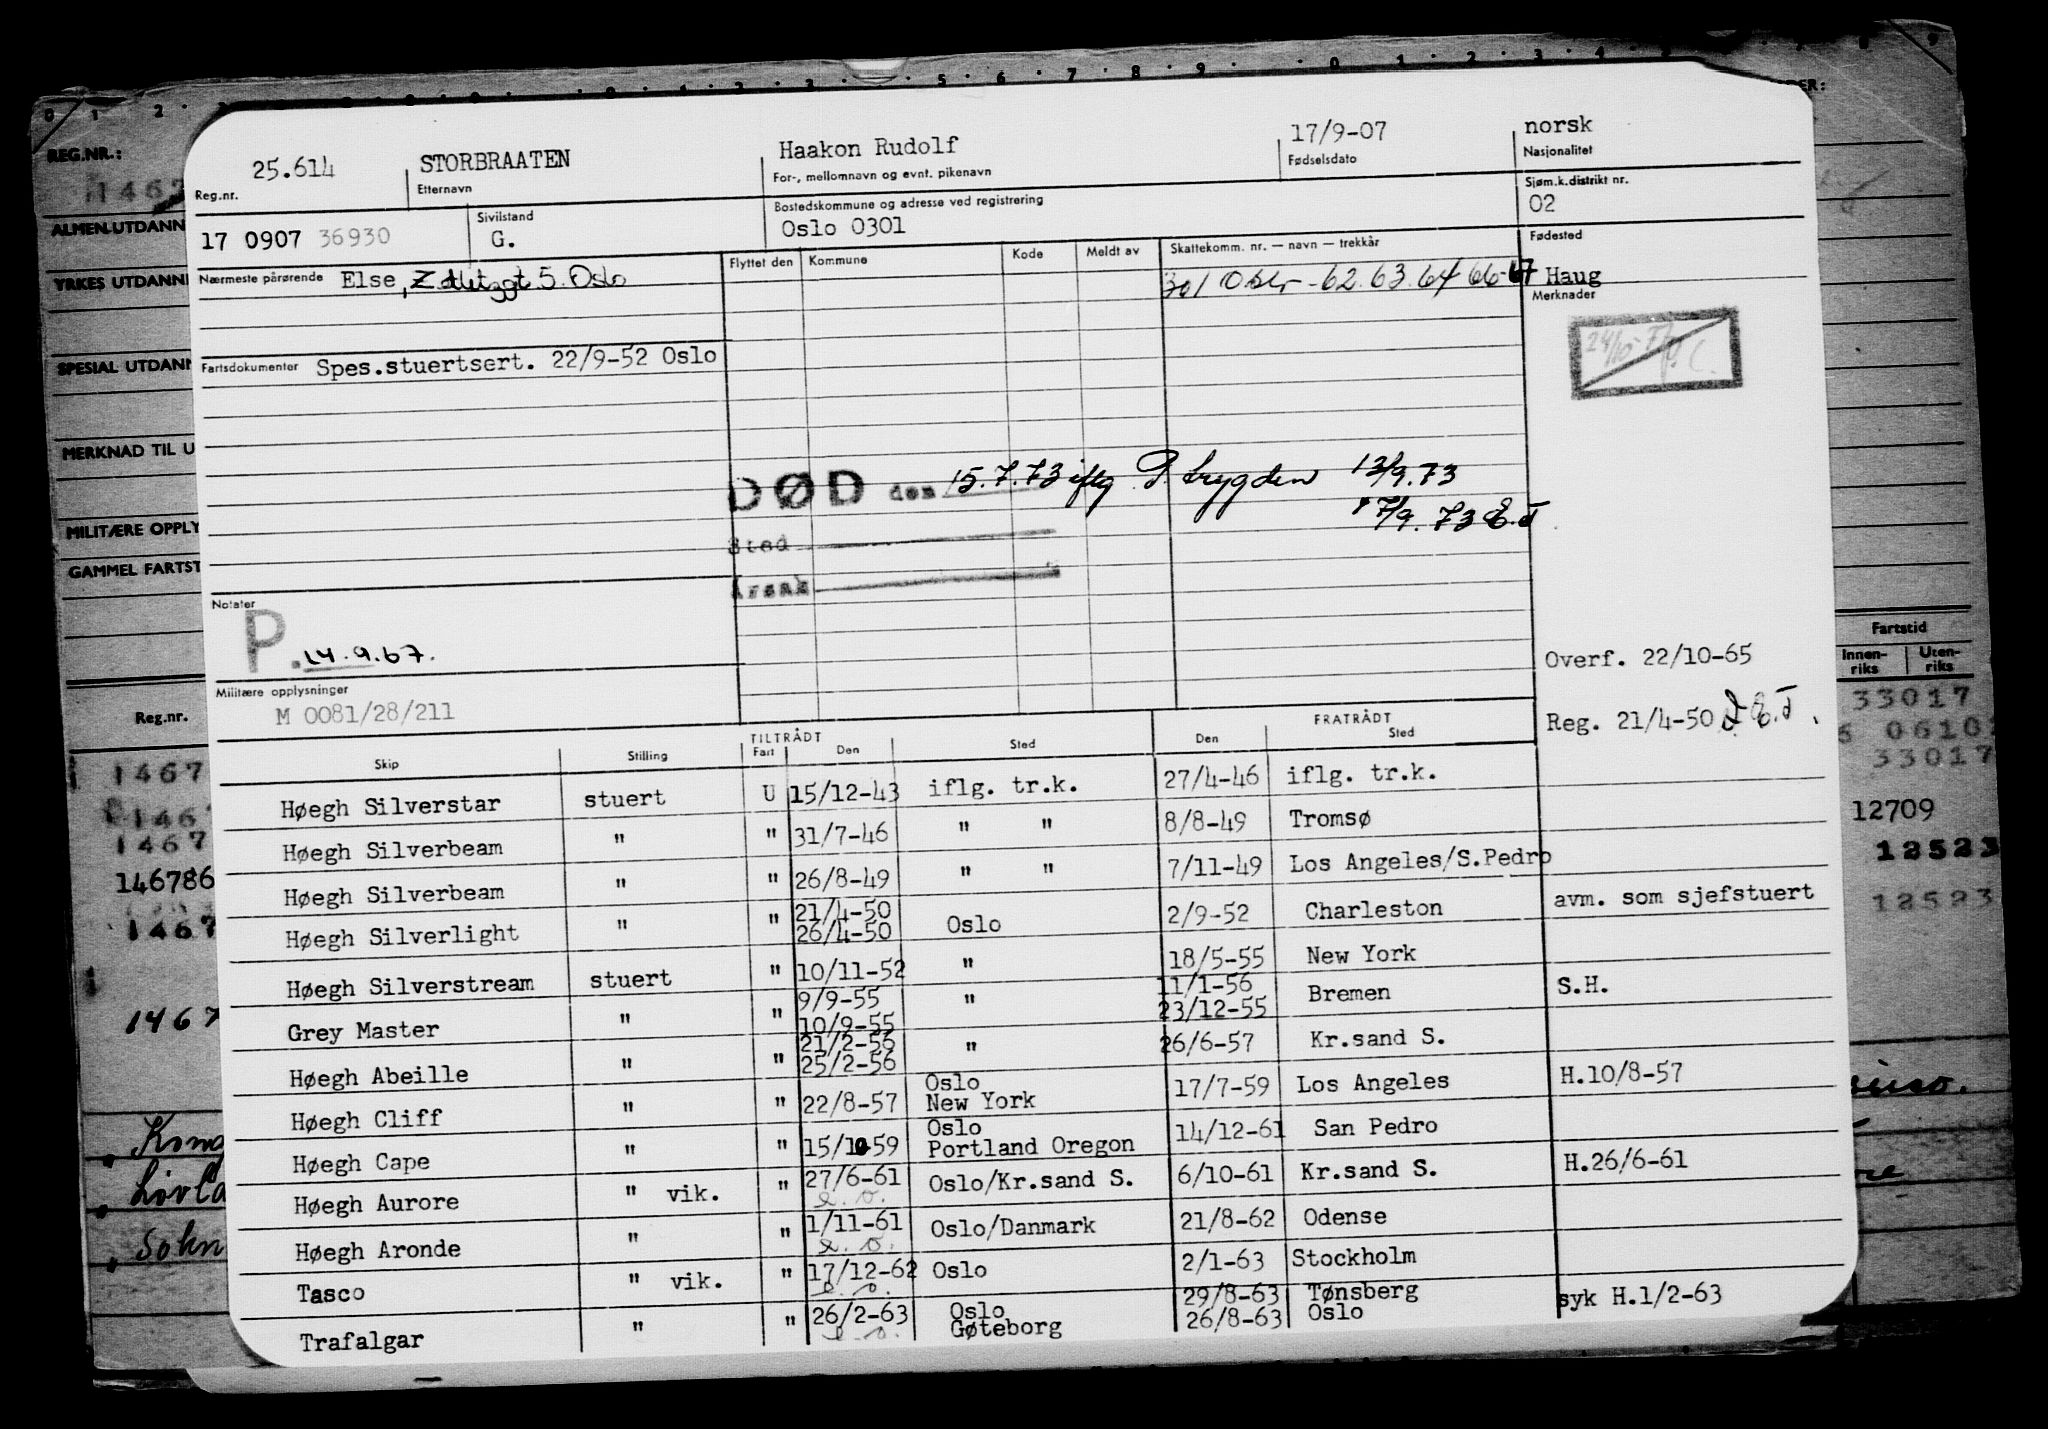 REG.NR.:
1467
ALMEN.UTDANN
YRKES UTDANNI
SPESIAL UTDANN
MERKNAD TIL U
MILITÆRE OPPLY
GAMMEL FARTST
Reg.nr.
1467
1467
1467
146786
1467
1467
ER:
Fartstid
Innen-riks Uten-riks
33017
0610
33017
12709
12523
12523
25.614 STORBRAATEN Haakon Rudolf 17/9-07 norsk
Reg.nr. Etternavn For-, mellomnavn og evnt. pikenavn Fødselsdato Nasjonalitet
Sivilstand Bostedskommune og adresse ved registrering Sjøm.k.distrikt nr.
17 0907 36930 G. Oslo 0301 02
Nærmeste pårørende Else, 5. Oslo
Flyttet den Kommune Kode Meldt av Skattekomm. nr. — navn — trekkår Fødested
301 Oslo - 62. 63. 64 66-67 Haug
Merknader
Fartsdokumenter Spes.stuertsert. 22/9-52 Oslo
DØD den 15.7.73 iflg P. trygden 13/9.73
17/9. 73 E.T
Sted
Årsak
Notater
P. 14.9.67.
Overf. 22/10-65
Militære opplysninger
M 0081/28/211
Reg. 21/4-50 E.T.
TILTRÅDT FRATRÅDT
Skip Stilling Fart Den Sted Den Sted
Høegh Silverstar stuert U 15/12-43 iflg. tr.k. 27/4-46 iflg. tr.k.
Høegh Silverbeam " " 31/7-46 " " 8/8-49 Tromsø
Høegh Silverbeam " " 26/8-49 " " 7/11-49 Los Angeles/S.Pedro
21/4-50
Høegh Silverlight " " 26/4-50 Oslo 2/9-52 Charleston avm. som sjefstuert
Høegh Silverstream stuert " 10/11-52 " 18/5-55 New York
9/9-55 11/1-56
Grey Master " " 10/9-55 " 23/12-55 Bremen S.H.
21/2-56
Høegh Abeille " " 25/2-56 " 26/6-57 Kr.sand S.
Oslo
Høegh Cliff " " 22/8-57 New York 17/7-59 Los Angeles H.10/8-57
Oslo
Høegh Cape " " 15/10-59 Portland Oregon 14/12-61 San Pedro
Høegh Aurore " vik. " 27/6-61 Oslo/Kr.sand S. 6/10-61 Kr.sand S. H.26/6-61
Høegh Aronde " " 1/11-61 Oslo/Danmark 21/8-62 Odense
Tasco " vik. " 17/12-62 Oslo 2/1-63 Stockholm
Oslo 29/8-63 Tønsberg
Trafalgar " " 26/2-63 Gøteborg 26/8-63 Oslo syk H.1/2-63